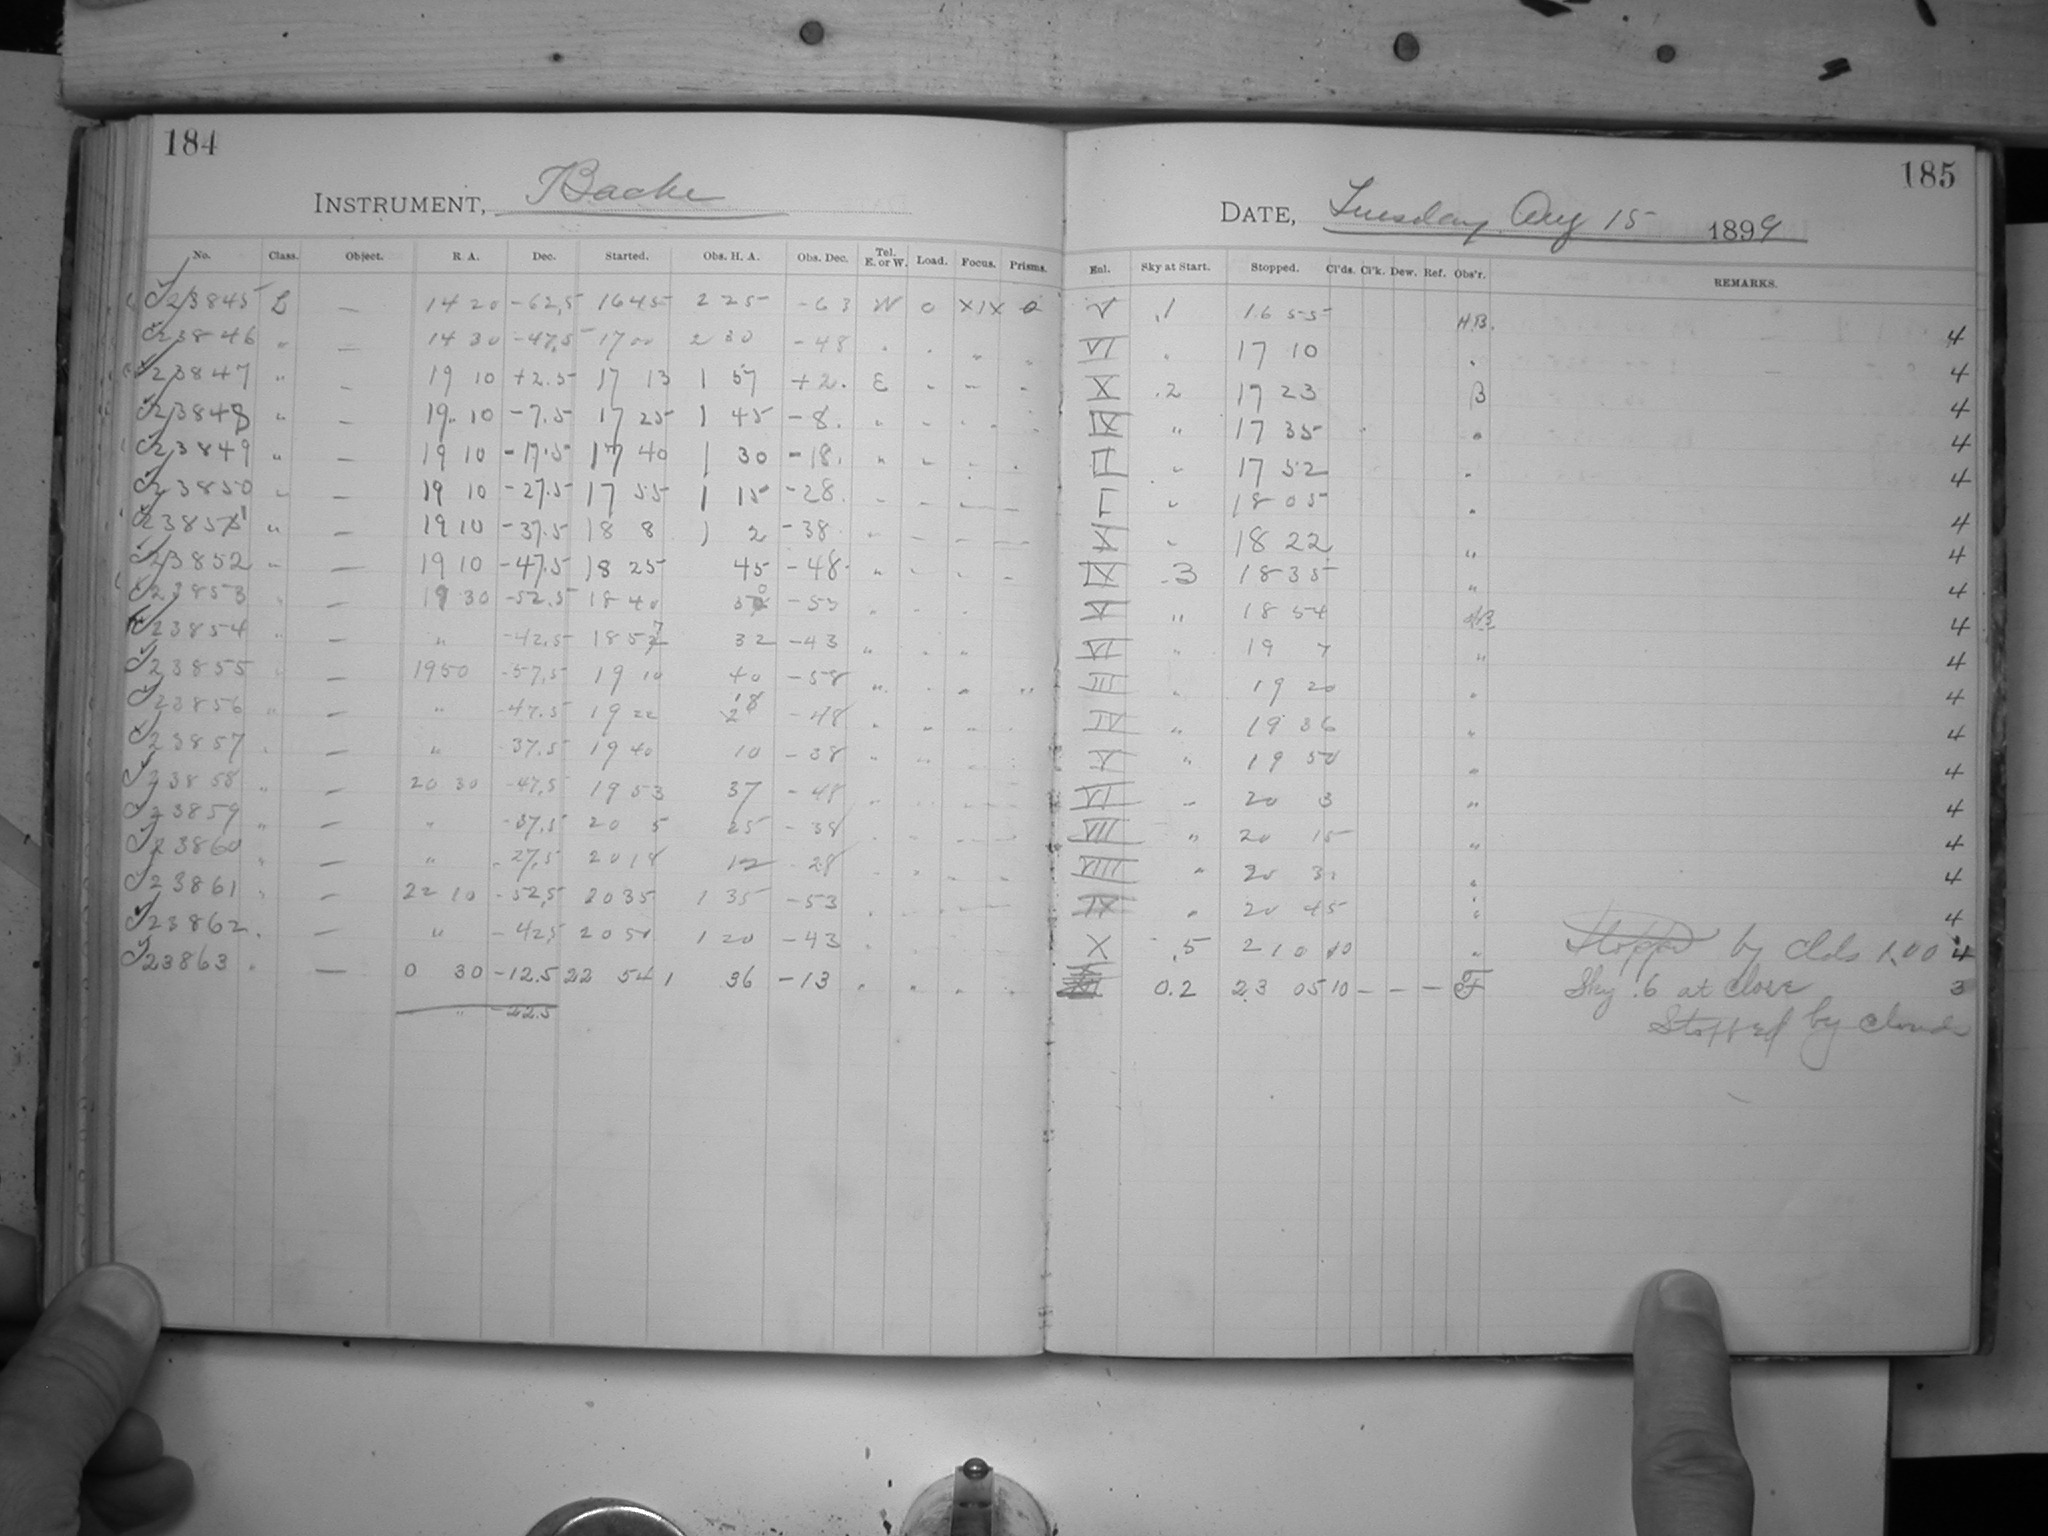 184
INSTRUMENT, Bache
No. Class. Object. R. A. Dec. Started. Obs. H. A. Obs. Dec. Tel. E. or W. Load. Focus. Prisms.
23845 L — 14 20 -62.5 16 45 2 25 -63 W 0 XIX 0
23846 " — 14 30 -47.5 17 00 2 30 -48 " " " "
23847 " — 19 10 +2.5 17 13 1 57 +2. E " " "
23848 " — 19 10 -7.5 17 25 1 45 -8. " " " "
23849 " — 19 10 -17.5 17 40 1 30 -18. " " " "
23850 " — 19 10 -27.5 17 55 1 15 -28. " " " "
23851 " — 19 10 -37.5 18 8 1 2 -38 " " " "
23852 " — 19 10 -47.5 18 25 45 -48. " " " "
23853 " — 19 30 -52.5 18 40 50 -53 " " "
23854 " — " -42.5 18 57 32 -43 " " "
23855 " — 19 50 -57.5 19 10 40 -58 " " " "
23856 " — " -47.5 19 22 28 -48 " " " "
23857 " — " 37.5 19 40 10 -38 " " " "
23858 " — 20 30 -47.5 19 53 37 -48 " " " "
23859 " — " -37.5 20 5 25 -38 " " " "
23860 " — " -27.5 20 18 12 -28 " " " "
23861 " — 22 10 -52.5 20 35 1 35 -53 " " " "
23862 " — " -42.5 20 50 1 20 -43 " " " "
23863 " — 0 30 -12.5 22 54 1 36 -13 " " " "
" -22.5
185
DATE, Tuesday Aug 15 1899
Enl. Sky at Start. Stopped. Cl'ds. Cl'k. Dew. Ref. Obs'r. REMARKS.
V .1 16 55 H.B. 4
VI " 17 10 " 4
X .2 17 23 B 4
IX " 17 35 " 4
" 17 52 " 4
" 18 05 " 4
" 18 22 " 4
IX .3 18 35 " 4
V " 18 54 HB 4
VI " 19 7 " 4
III " 19 20 " 4
IV " 19 36 " 4
V " 19 50 " 4
VI " 20 3 " 4
VII " 20 15 " 4
VIII " 20 3 " 4
IX " 20 45 " 4
X .5 21 0 10 " Stopped by clds 1.00 4
0.2 23 05 10 — — — F Sky .6 at close 3
Stopped by clouds